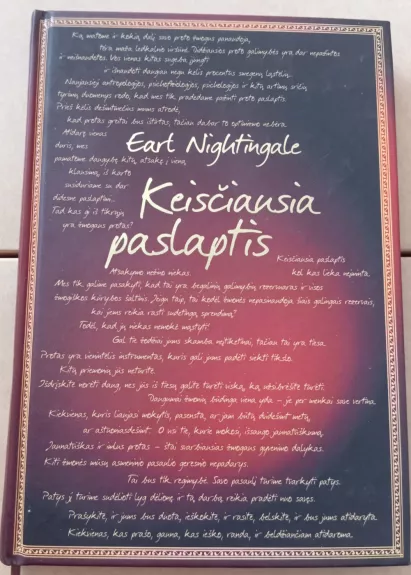 Ką matome ir kokią dalį savo proto žmogus panaudoja,
tėra maža ledkalnio viršūnė. Didžiausios proto galimybės yra dar nepažintos
ir neišnaudotos. Vos vienas kitas sugeba įjungti
ir išnaudoti daugiau negu kelis procentus smegenų ląstelių.
Naujausieji antropologijos, psichofiziologijos, psichologijos ir kitų artimų sričių
tyrimų duomenys rodo, kad mes tik pradedame pažinti proto paslaptis.
Prieš kelis dešimtmečius mums atrodė,
kad protas greitai bus ištirtas, tačiau dabar to optimizmo nebėra.
Atidarę vienas
duris, mes
pamatome daugybę kitų, atsakę į vieną
klausimą, iš karto
susiduriame su dar
didesne paslaptimi...
Tad kas gi iš tikrųjų
yra žmogaus protas?
Earl Nightingale
Keisčiausia
paslaptis
Keisčiausia paslaptis
kol kas lieka neįminta.
Atsakymo nežino niekas.
Mes tik galime pasakyti, kad tai yra begalinių galimybių rezervuaras ir visos
žmogiškos kūrybos šaltinis. Jeigu taip, tai kodėl žmonės nepasinaudoja šiais galingais rezervais,
kai jiems reikia rasti sudėtingą sprendimą?
Todėl, kad jų niekas nemokė mąstyti.
Gal tie žodžiai jums skamba neįtikėtinai, tačiau tai yra tiesa.
Protas yra vienintelis instrumentas, kuris gali jums padėti siekti tikslo.
Kitų priemonių jūs neturite.
Išdrįskite norėti daug, nes jūs iš tiesų galite turėti viską, ką užsibrėžėte turėti.
Daugumai žmonių būdinga viena yda – jie per menkai save vertina.
Kiekvienas, kuris liaujasi mokytis, pasensta, ar jam būtų dvidešimt metų,
ar aštuoniasdešimt. O visi tie, kurie mokosi, išsaugo jaunatviškumą.
Jaunatviškas ir imlus protas – štai svarbiausias žmogaus gyvenimo dalykas.
Kiti žmonės mūsų asmeninio pasaulio geresnio nepadarys.
Tai bus tik regimybė. Savo pasaulį turime tvarkyti patys.
Patys jį turime sudėlioti lyg dėlionę, ir tą darbą reikia pradėti nuo savęs.
Prašykite, ir jums bus duota, ieškokite, ir rasite, belskite, ir bus jums atidaryta.
Kiekvienas, kas prašo, gauna, kas ieško, randa, ir beldžiančiam atidaroma.